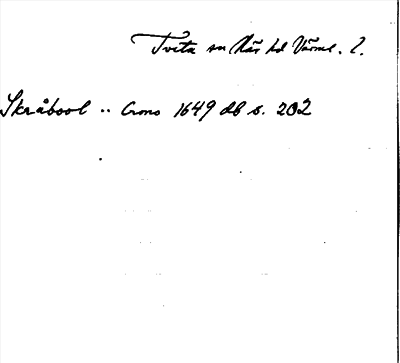 Tveta sn Näs hd Värml. l.
Skråbool .. Crono 1649 db s. 202